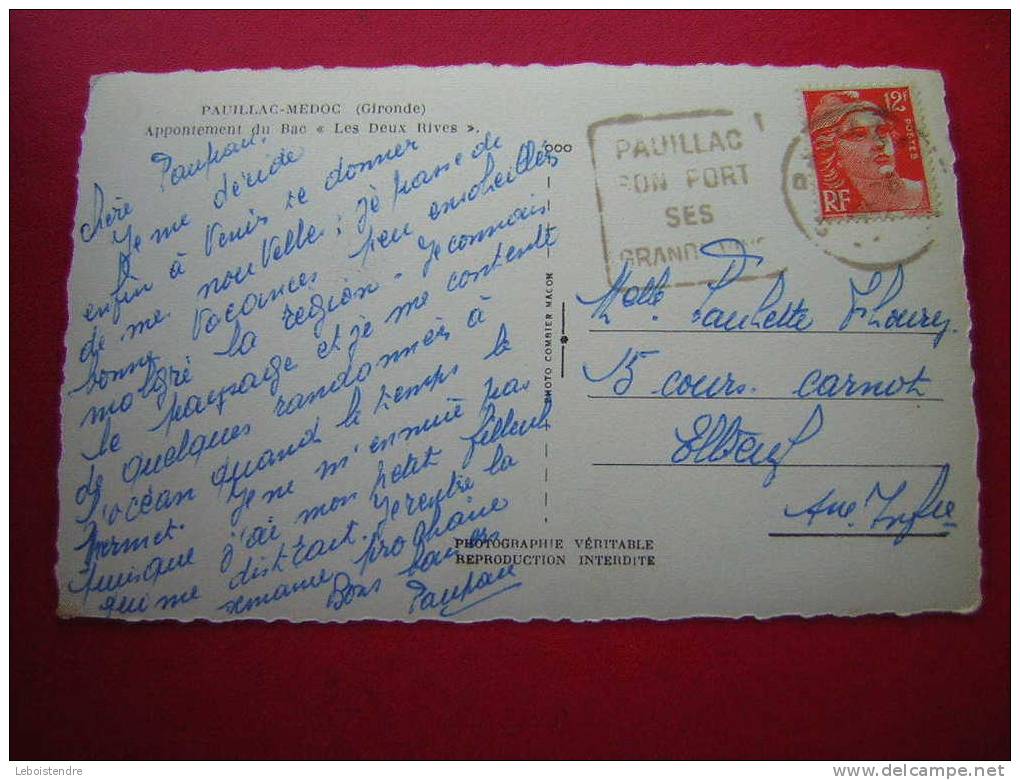 PAUILLAC-MEDOC (Gironde)
Appontement du Bac « Les Deux Rives ».
Chère
Je me décide
enfin à venir te donner
de mes nouvelles; je passe de
bonnes vacances peu ensoleillés
malgré la région. Je connais
le paysage et je me contente
de quelques randonnées à
l'océan quand le temps le
permet. Je ne m'ennuie pas
puisque j'ai mon petit filleul
qui me distrait. Je rentre la
semaine prochaine
Bons baisers
000
PHOTO COMBIER MACON
PHOTOGRAPHIE VÉRITABLE
REPRODUCTION INTERDITE
PAUILLAC
SON PORT
SES
GRANDS
12F
POSTES
RF
Melle Paulette
15 cours carnot
Elbeuf
Infre
Leboistendre
delcampe.net